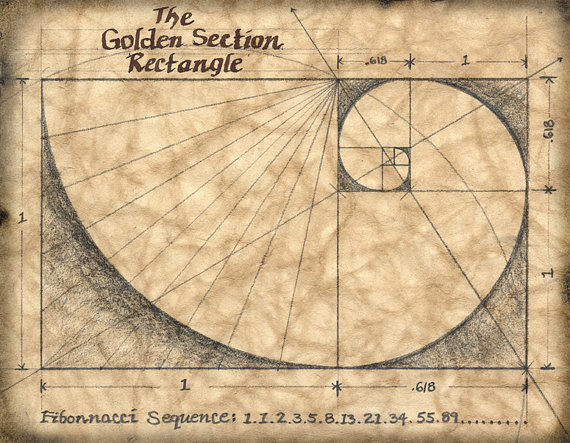 The
Golden Section
Rectangle
.618
1
.618
1
1
1
.618
Fibonnacci Sequence: 1.1.2.3.5.8.13.21.34.55.89.........